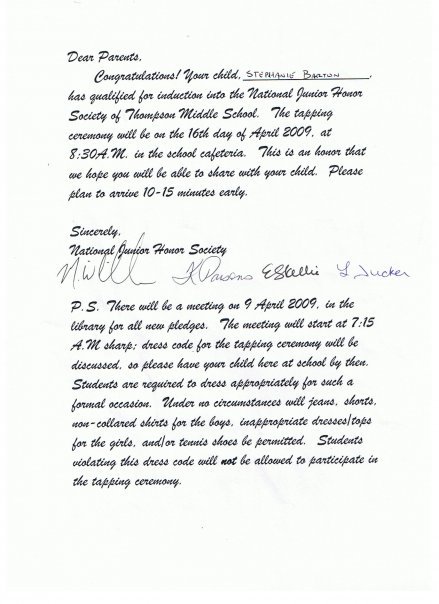 Dear Parents,
Congratulations! Your child, STEPHANIE BARTON,
has qualified for induction into the National Junior Honor
Society of Thompson Middle School. The tapping
ceremony will be on the 16th day of April 2009, at
8:30A.M. in the school cafeteria. This is an honor that
we hope you will be able to share with your child. Please
plan to arrive 10-15 minutes early.
Sincerely,
National Junior Honor Society
Parsons L Tucker
P.S. There will be a meeting on 9 April 2009, in the
library for all new pledges. The meeting will start at 7:15
A.M sharp; dress code for the tapping ceremony will be
discussed, so please have your child here at school by then.
Students are required to dress appropriately for such a
formal occasion. Under no circumstances will jeans, shorts,
non-collared shirts for the boys, inappropriate dresses/tops
for the girls, and/or tennis shoes be permitted. Students
violating this dress code will not be allowed to participate in
the tapping ceremony.